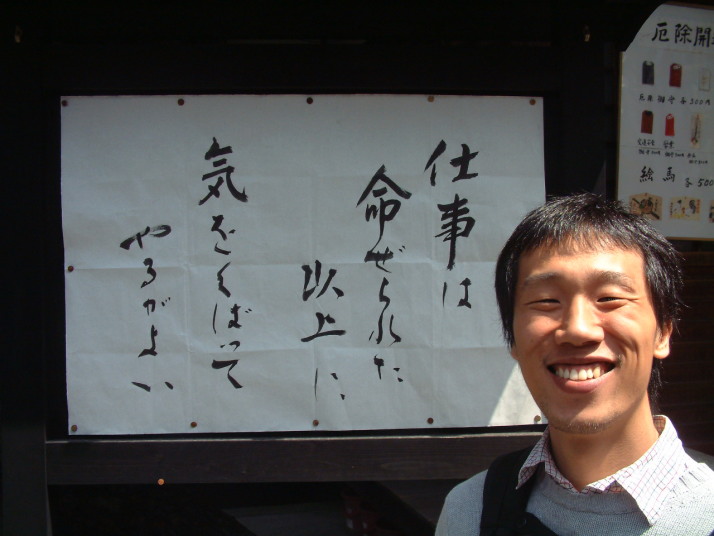 仕事は
命ぜられた
以上に
気をくばって
やるがよい
厄除開
厄除 御守 各300円
絵馬 各500